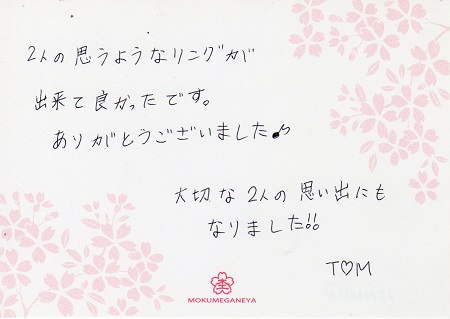 2人の思うようなリングが
出来て良かったです。
ありがとうございました♪
大切な2人の思い出にも
なりました!!
T♡M
MOKUMEGANEYA